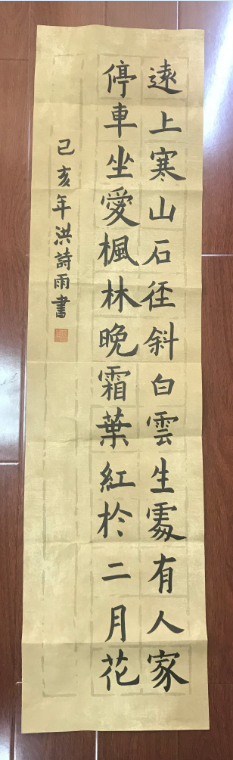 遠上寒山石径斜白雲生處有人家
停車坐愛楓林晚霜葉紅於二月花
己亥年洪詩雨書